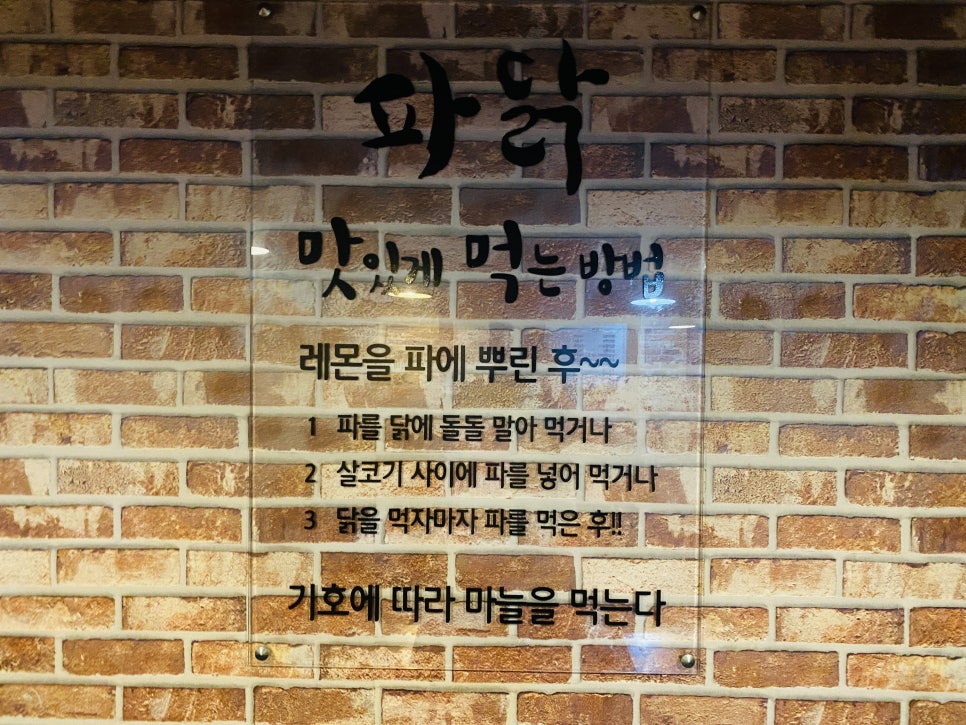 파닭
맛있게 먹는 방법
레몬을 파에 뿌린 후~~
1 파를 닭에 돌돌 말아 먹거나
2 살코기 사이에 파를 넣어 먹거나
3 닭을 먹자마자 파를 먹은 후!!
기호에 따라 마늘을 먹는다